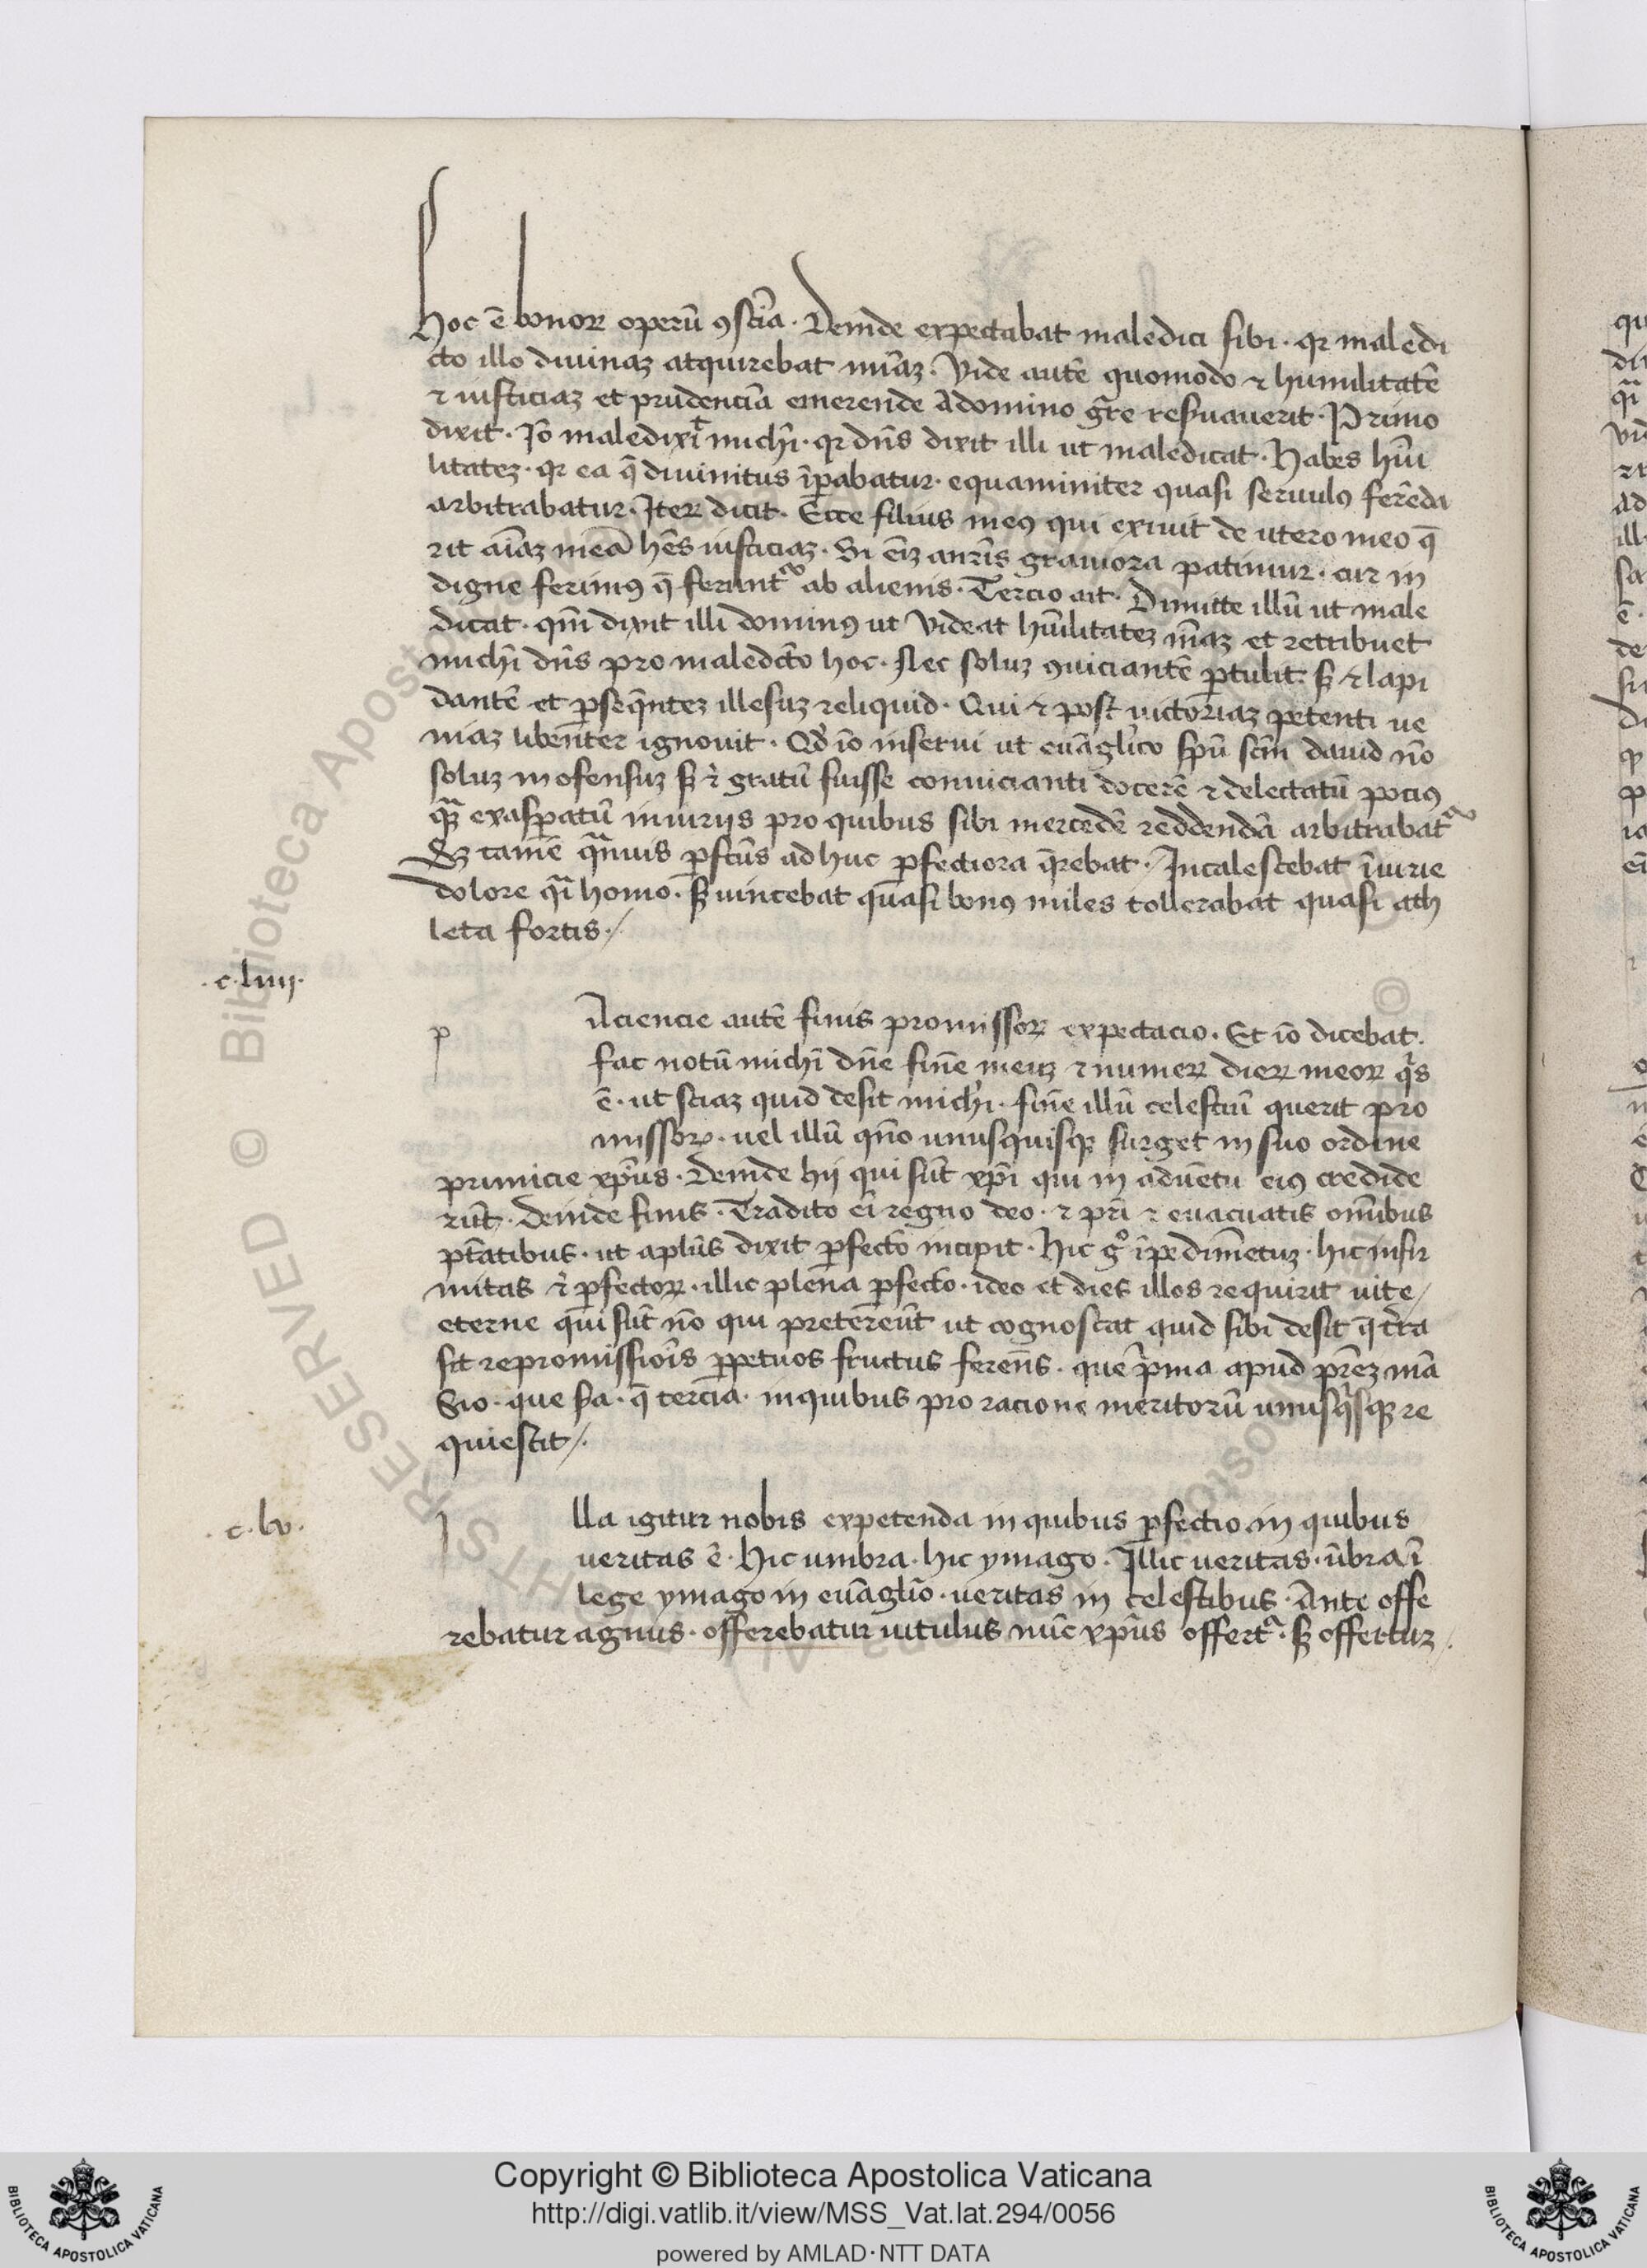 hoc ē bonoꝝ operū ꝯsciā · Deinde expectabat maledici sibi · qꝛ maledi
cto illo divinaꝫ atquirebat miāꝫ · Vide autē quomodo ⁊ humilitatē
⁊ iusticiaꝫ et prudenciā emerende a domino gr̄e res̄uauerit · Primo
dixit · Iō maledixit michi · qꝛ dn̄s dixit illi ut maledicat · Habes hūi
litateꝫ · qꝛ ea q̄ divinitus īꝑabatur · equaminiter quasi seruulꝰ ferēda
arbitrabatur · Iteꝝ dicit · Ecce filius meꝰ qui exiuit de utero meo q̄
rit aīaꝫ meā hēs iusticiaꝫ · Si eīꝫ a nr̄is grauiora patimur · cur in
digne ferimꝰ q̄ ferunt᷑ ab alienis · Tercio ait · Dimitte illū ut male
dicat · qm̄ dixit illi dominꝰ ut videat hūilitateꝫ m̄aꝫ et retribuet
michi dn̄s pro maledc̄to hoc · Nec soluꝫ ꝯuiciantē ꝑtulit · sꝫ ⁊ lapi
dantē et ꝑseq̄nteꝫ illesuꝫ reliquid · Qui ⁊ post uictoriaꝫ petenti ue
niaꝫ libenter ignouit · Qd̓ iō inserui ut euāglīco spū sc̄m dauid nō
soluꝫ inofensuꝫ sꝫ ⁊ gratū fuisse conuicianti docerē ⁊ delectatū pociꝰ
quā exasꝑatū iniuriis pro quibus sibi mercedē reddendā arbitrabat᷑
Sꝫ tamē quāuis ꝑfc̄us adhuc ꝑfectiora q̄rebat · Incalescebat īiurie
dolore quāi homo · sꝫ uincebat quasi bonꝰ miles tollerabat quasi ath
leta fortis ·/
· c · liiij ·
p aciencie autē finis promissoꝝ expectacio · Et iō dicebat ·
fac notū michi dn̄e finē meuꝫ ⁊ numeꝝ dieꝝ meoꝝ qͥs
ē · ut sciaꝫ quid desit michi · finē illū celestiū querit pro
missoꝝ · uel illū qn̄o unusquisqꝫ surget in suo ordine
primicie xp̄us · Deinde hij qui sūt xp̄i qui in aduētu eiꝰ credide
rūt · Deinde finis · Tradito ei regno deo · ⁊ pr̄i ⁊ euacuatis omībus
ptātibus · ut aplūs dixit ꝑfecto incipit · Hic gͦ īpedimētuꝫ · hic infir
mitas ⁊ ꝑfectoꝝ · illic plena ꝑfecto · ideo et dies illos requirit uite/
eterne qui sūt nō qui pretereūt ut cognoscat quid sibi desit q̄ t̄ra
sit repromissiōis ꝑpetuos fructus ferens · que pͥma apud pr̄eꝫ mā
sio · que s̄a · q̄ tercia · in quibus pro racione meritorū unusqͥsqꝫ re
quiescit/ ·
· c · lv ·
I lla igitur nobis expetenda in quibus ꝑfectio in quibus
ueritas ē · Hic umbra · hic ymago · Illic ueritas · ūbra ī
lege ymago in euāgliō · ueritas in celestibus · Ante offe
rebatur agnus · offerebatur uitulus nūc xp̄us offert᷑ · sꝫ offertur
Copyright © Biblioteca Apostolica Vaticana
http://digi.vatlib.it/view/MSS_Vat.lat.294/0056
powered by AMLAD·NTT DATA
BIBLIOTECA APOSTOLICA VATICANA
BIBLIOTECA APOSTOLICA VATICANA